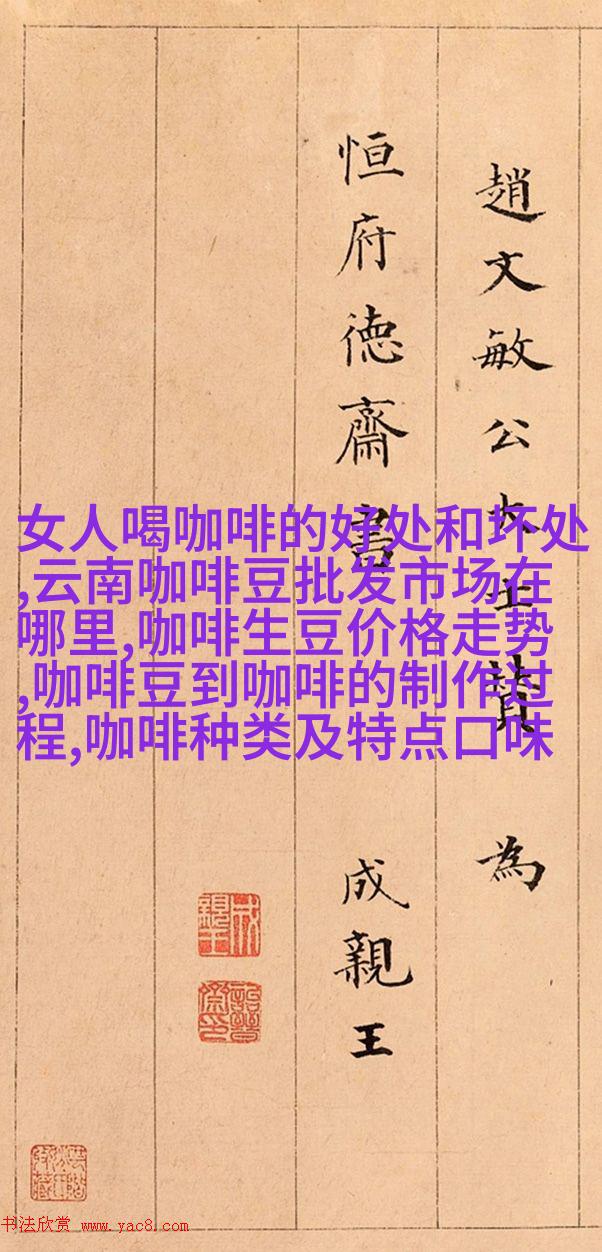 趙文敏公大士贊為
恒府德齋書成親王
女人喝咖啡的好处和坏处
,云南咖啡豆批发市场在
哪里,咖啡生豆价格走势
,咖啡豆到咖啡的制作过
程,咖啡种类及特点口味
成親王
詒晉齋印
书法欣赏 www.yac8.com